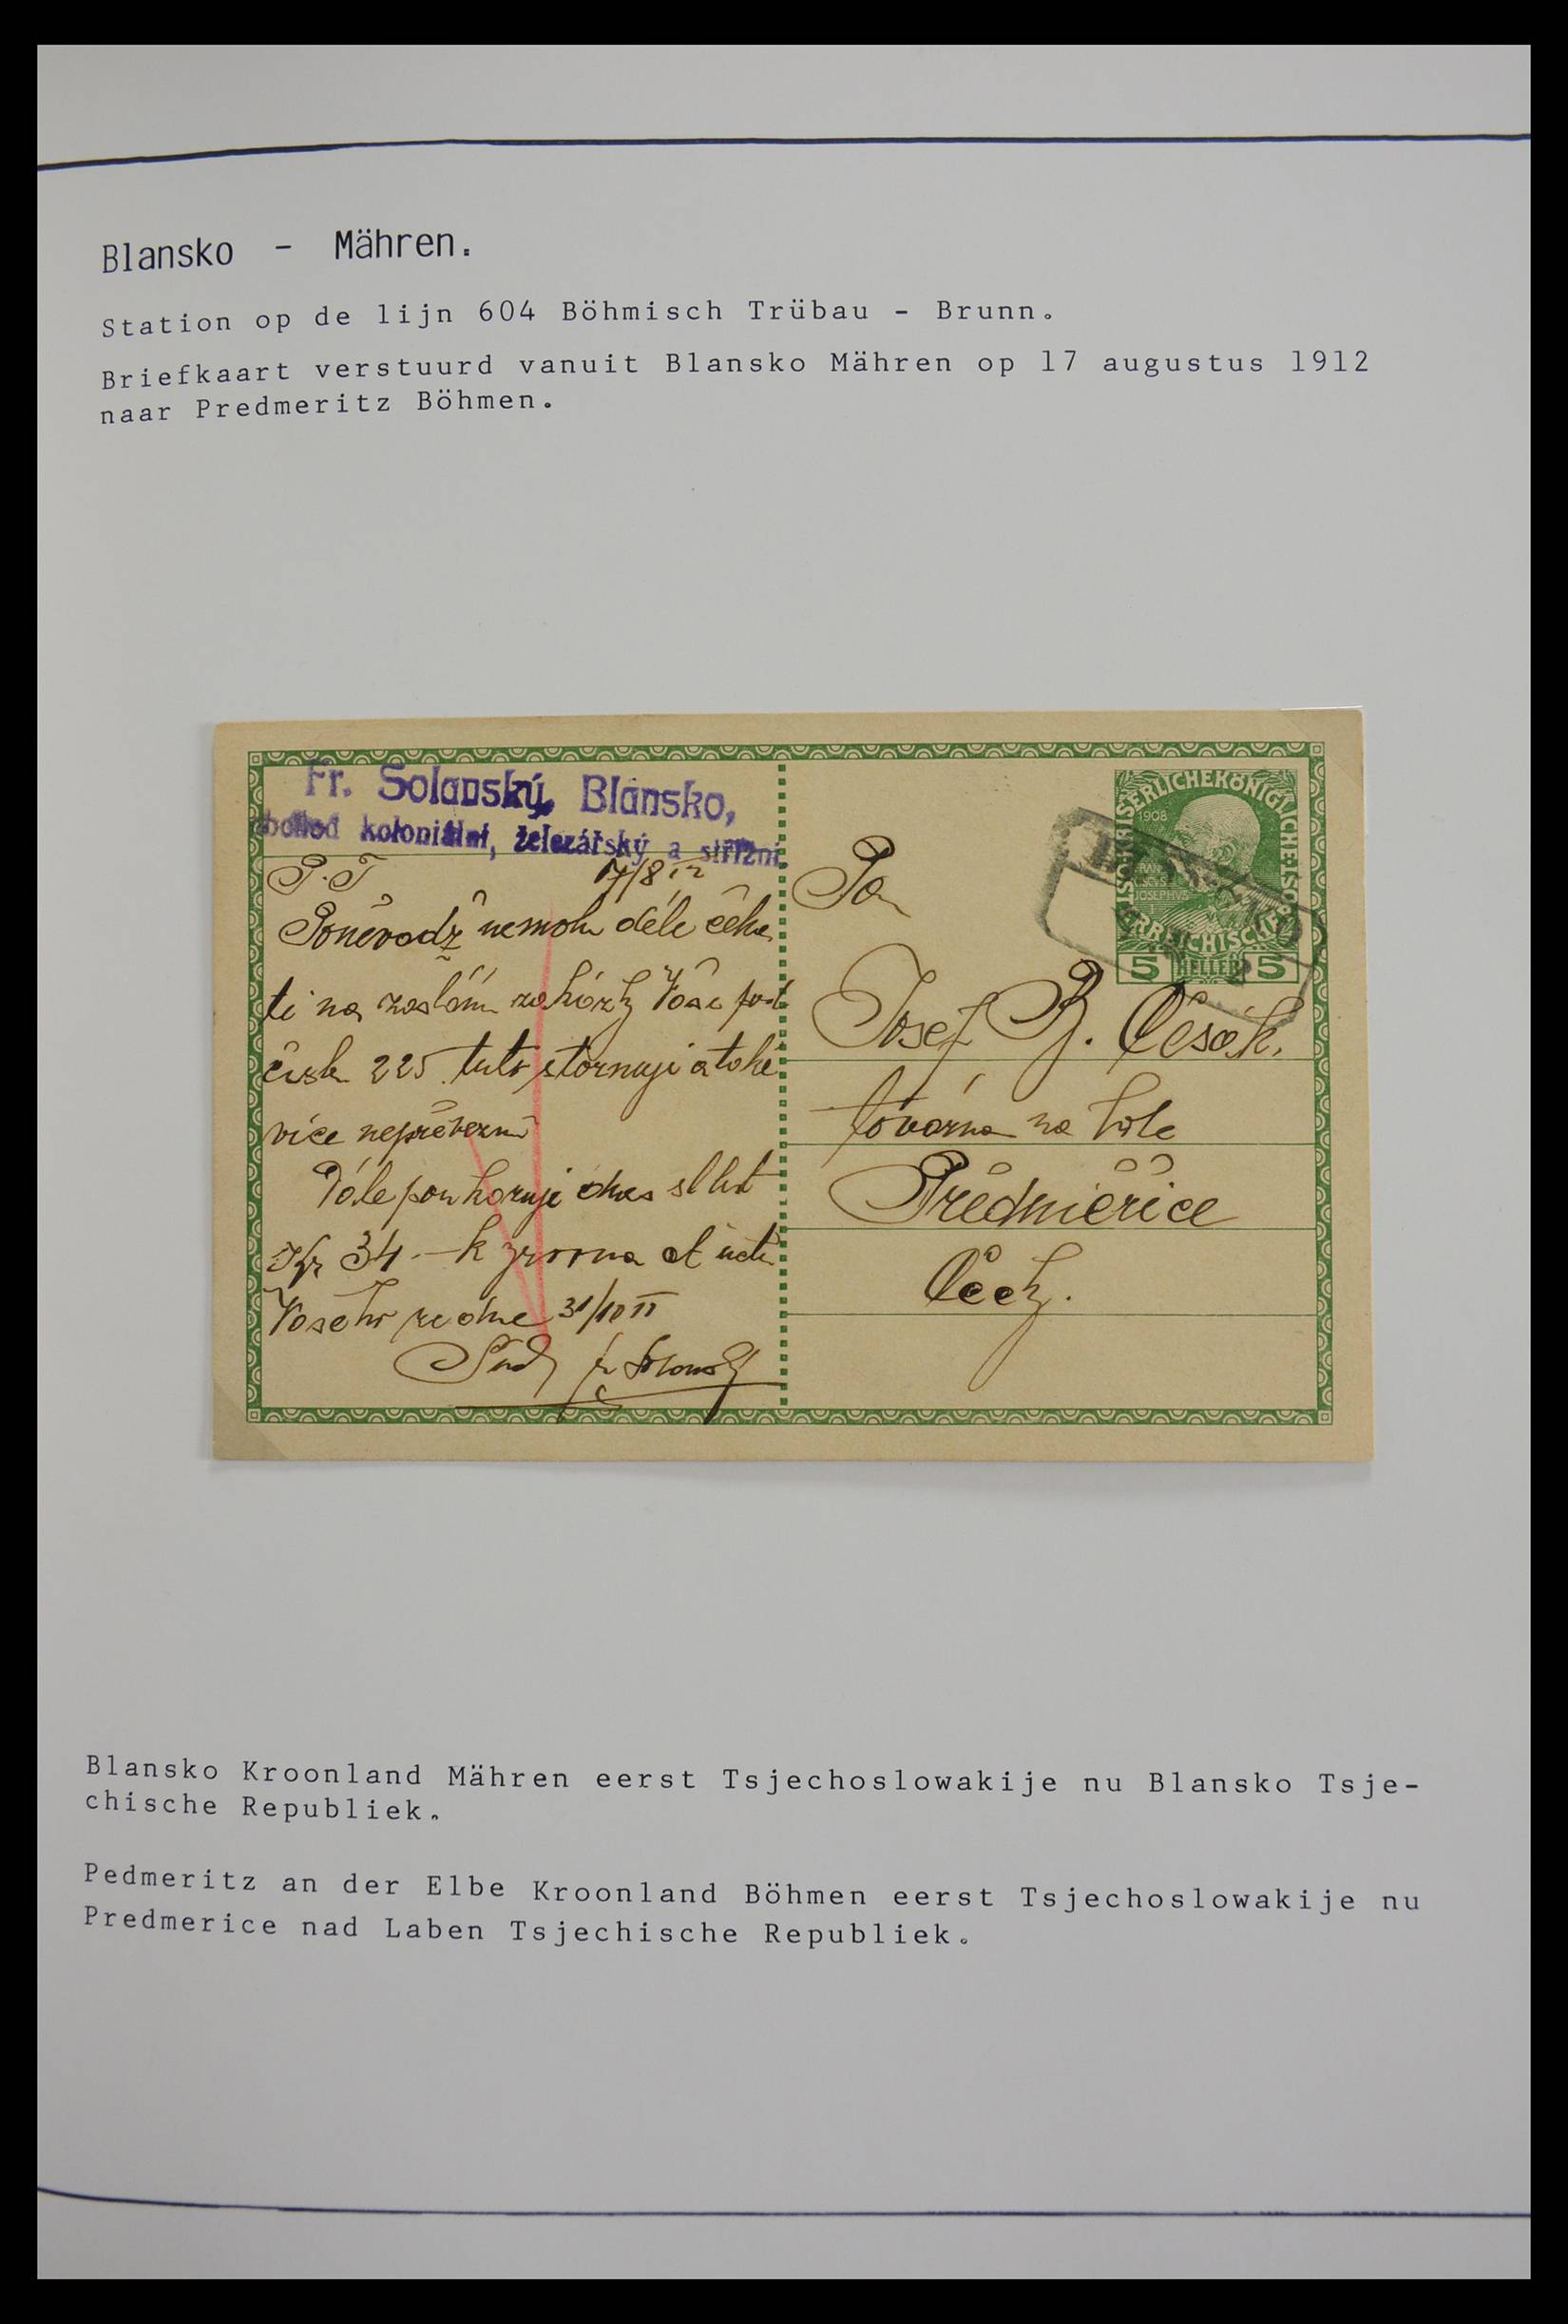 Blansko - Mähren.
Station op de lijn 604 Böhmisch Trübau - Brunn.
Briefkaart verstuurd vanuit Blansko Mähren op 17 augustus 1912
naar Predmeritz Böhmen.
Fr. Solanský, Blansko,
obchod koloniální, železářský a střižní.
P. T. 17/8 12
Poněvadž nemohu déle čeka
ti na zaslání zakázky Vaše pod
čísl. 225 tuto stornuji a také
více nepřevezmu
Dále poukazuji dnes
Kr 34.- k
Vašeho ze dne 31/10 11
Fr. Solanský
Pan
Josef B. Česák.
továrna na hole
Předměřice
Čechy.
KAISERLICHE KÖNIGLICHE ÖSTERREICHISCHE POST
1908
FRAN
CISCVS
JOSEPHVS I
5 HELLER 5
BLANSKO
Blansko Kroonland Mähren eerst Tsjechoslowakije nu Blansko Tsje-
chische Republiek.
Pedmeritz an der Elbe Kroonland Böhmen eerst Tsjechoslowakije nu
Predmerice nad Laben Tsjechische Republiek.